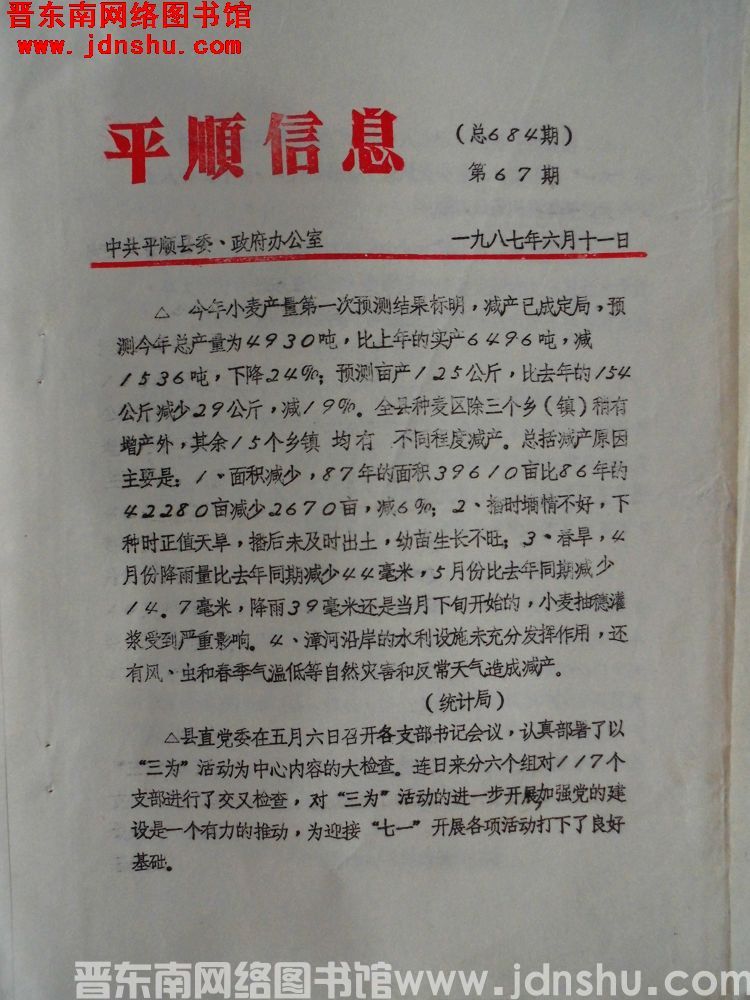 晋东南网络图书馆
www.jdnshu.com
平顺信息
(总684期)
第67期
中共平顺县委、政府办公室 一九八七年六月十一日
△ 今年小麦产量第一次预测结果标明，减产已成定局，预
测今年总产量为4930吨，比上年的实产6496吨，减
1536吨，下降24%；预测亩产125公斤，比去年的154
公斤减少29公斤，减19%。全县种麦区除三个乡（镇）稍有
增产外，其余15个乡镇 均有 不同程度减产。总括减产原因
主要是：1、面积减少，87年的面积39610亩比86年的
42280亩减少2670亩，减6%；2、播时墒情不好，下
种时正值天旱，播后未及时出土，幼苗生长不旺；3、春旱，4
月份降雨量比去年同期减少44毫米，5月份比去年同期减少
14.7毫米，降雨39毫米还是当月下旬开始的，小麦抽穗灌
浆受到严重影响。4、漳河沿岸的水利设施未充分发挥作用，还
有风、虫和春季气温低等自然灾害和反常天气造成减产。
（统计局）
△县直党委在五月六日召开各支部书记会议，认真部署了以
“三为”活动为中心内容的大检查。连日来分六个组对117个
支部进行了交叉检查，对“三为”活动的进一步开展，加强党的建
设是一个有力的推动，为迎接“七一”开展各项活动打下了良好
基础。
晋东南网络图书馆www.jdnshu.com